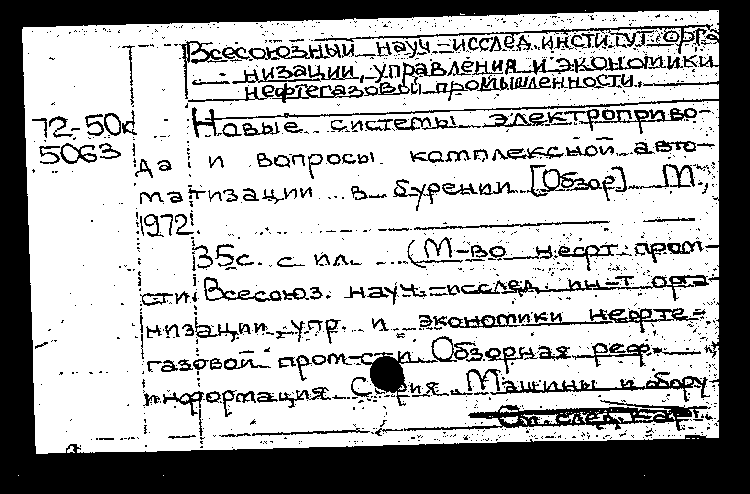 Всесоюзный науч.-исслед. институт орга-
низации, управления и экономики
нефтегазовой промышленности.
72-50к
5063
Новые системы электроприво-
да и вопросы комплексной авто-
матизации в бурении [Обзор] М.,
1972.
35с. с ил. (М-во нефт. пром-
сти. Всесоюз. науч.-исслед. ин-т орга-
низации, упр. и экономики нефте-
газовой пром-сти. Обзорная реф.
информация. Серия „Машины и обору-
См. след. карт.